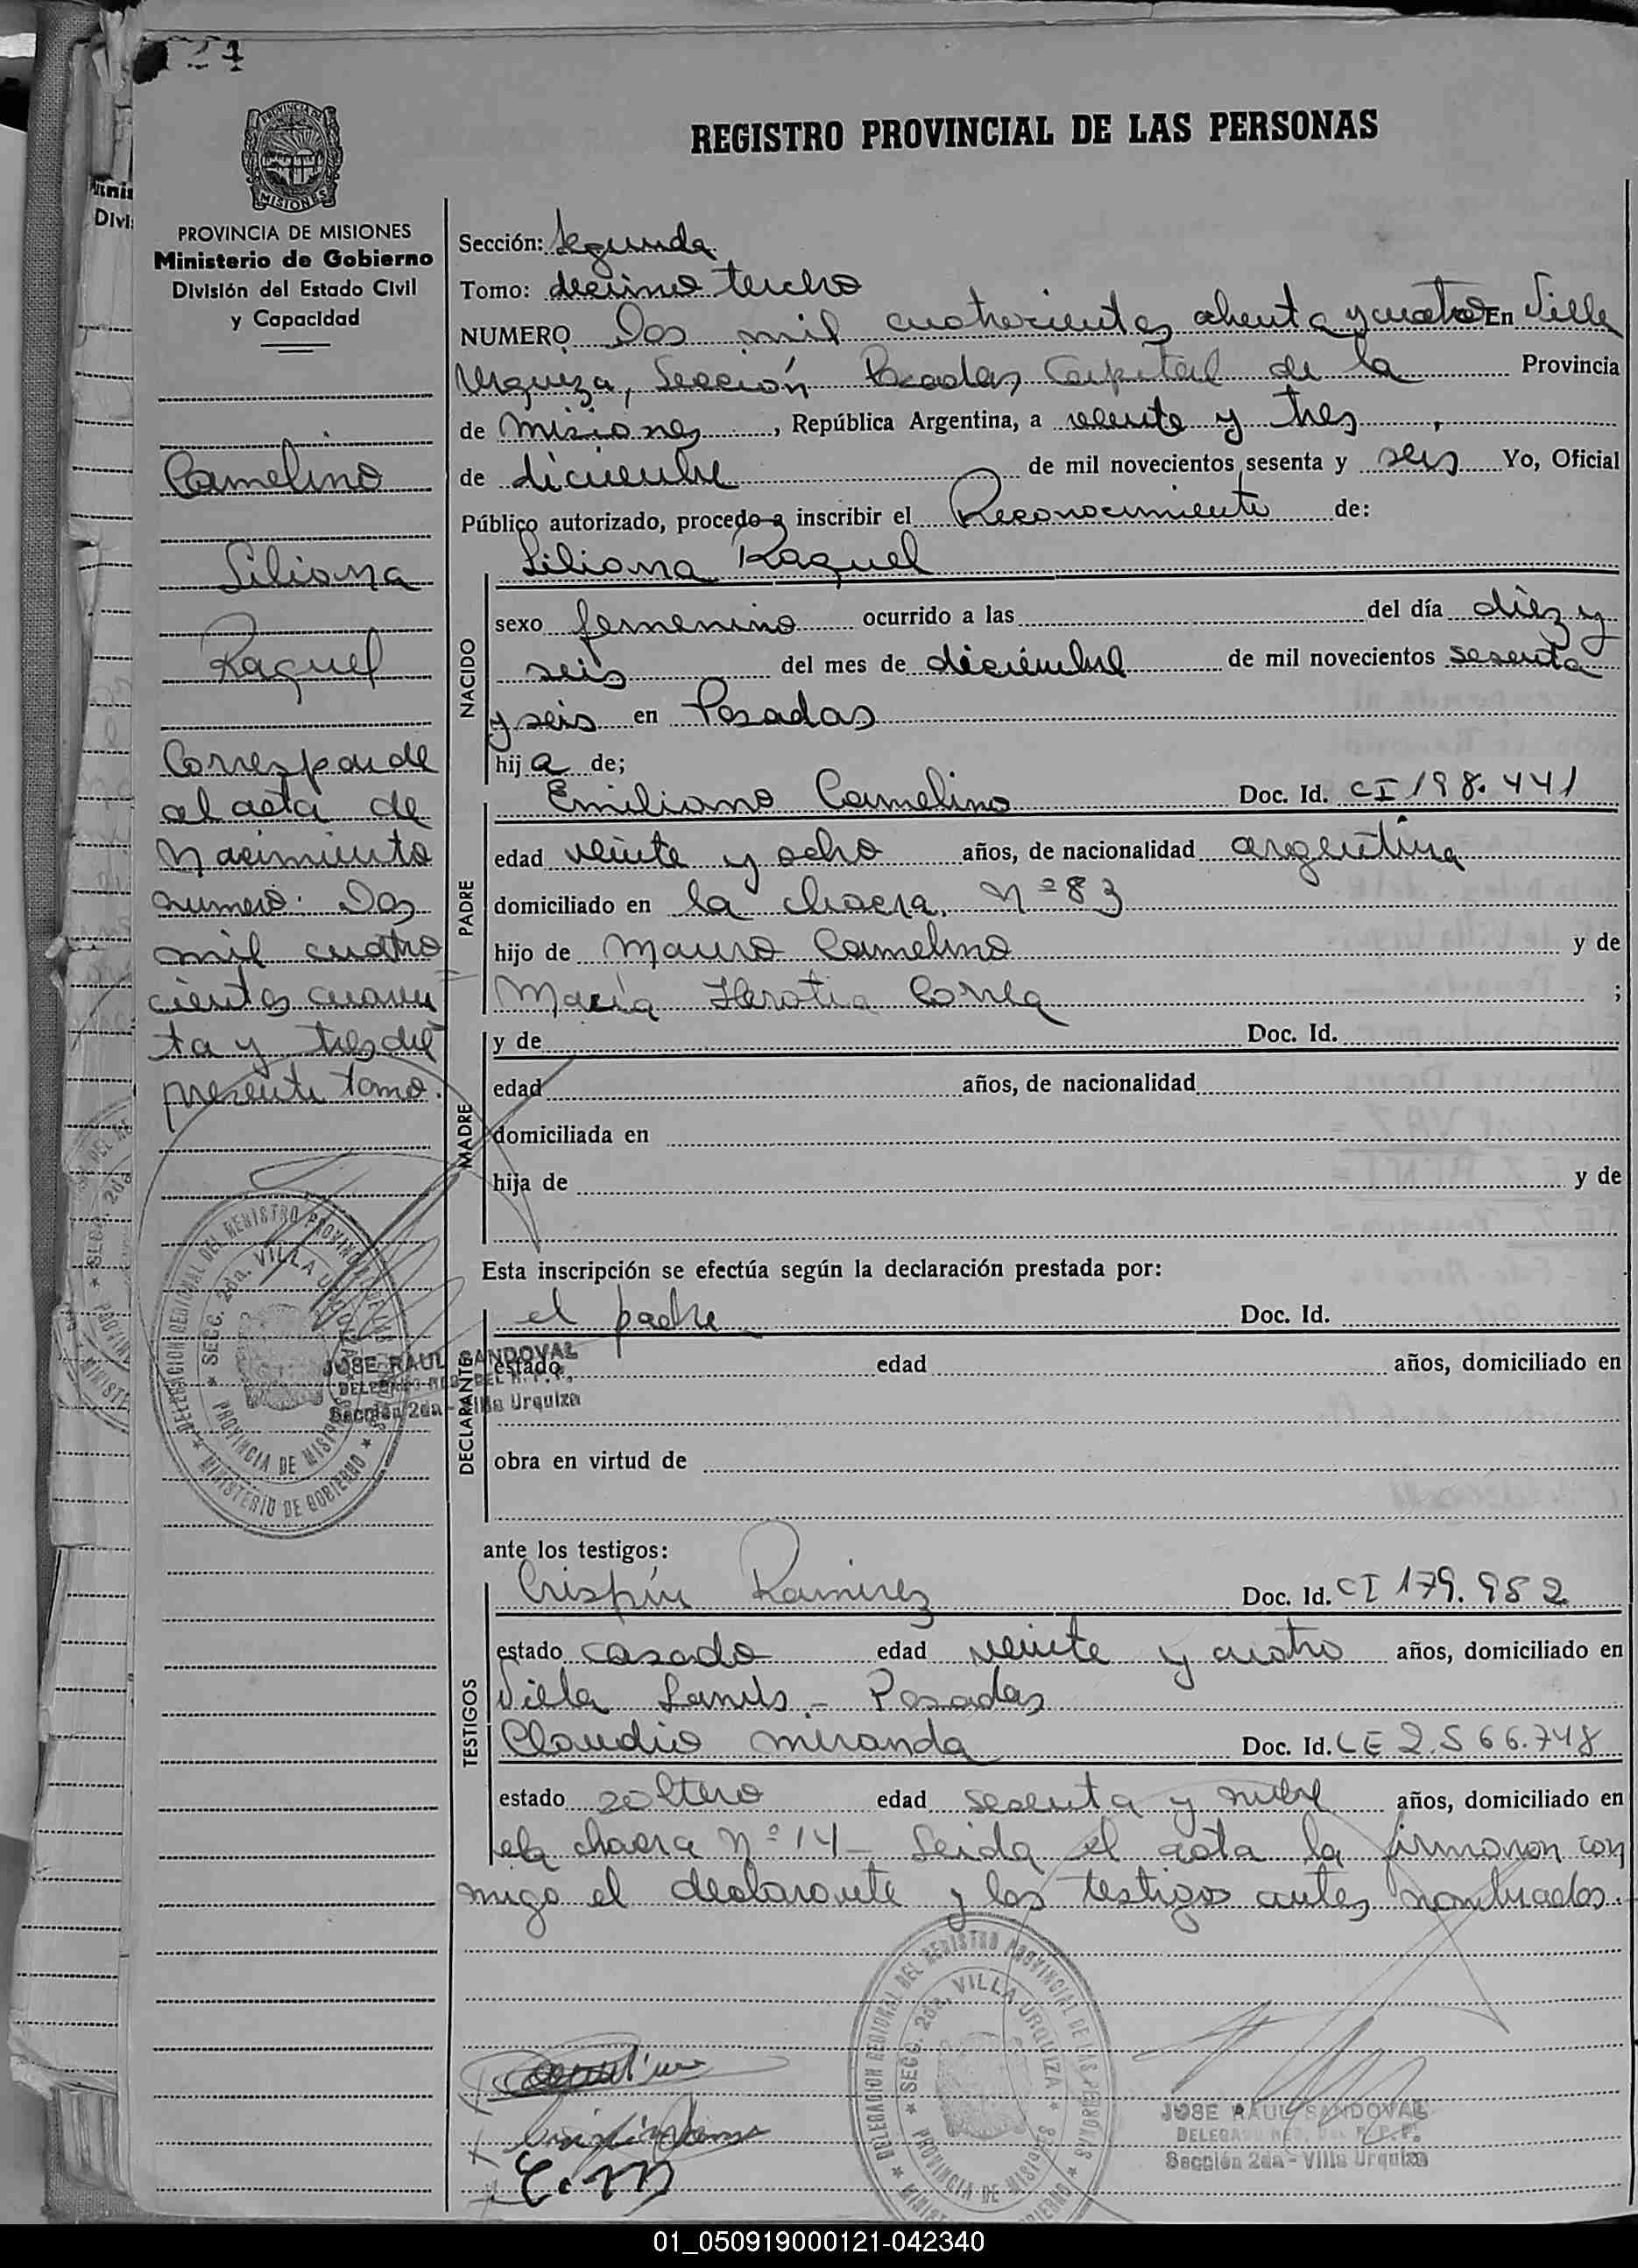 REGISTRO PROVINCIAL DE LAS PERSONAS
PROVINCIA DE MISIONES
Ministerio de Gobierno
División del Estado Civil
y Capacidad
Camelino
Liliana
Raquel
Corresponde
al acta de
Nacimiento
numero: Dos
mil cuatro
cientos cuaren
ta y tres del
presente tomo.
Sección: Segunda
Tomo: decimo tercero
NUMERO Dos mil cuatrocientos ochenta y cuatro En Villa
Urquiza, Sección Posadas Capital de la Provincia
de Misiones, República Argentina, a veinte y tres
de diciembre de mil novecientos sesenta y seis Yo, Oficial
Público autorizado, procedo a inscribir el Reconocimiento de:
Liliana Raquel
NACIDO
sexo femenino ocurrido a las del día diez y
seis del mes de diciembre de mil novecientos sesenta
y seis en Posadas
hija de;
PADRE
Emiliano Camelino Doc. Id. CI 198.441
edad veinte y ocho años, de nacionalidad argentina
domiciliado en la chacra Nº 83
hijo de Mauro Camelino y de
María Correa ;
MADRE
y de Doc. Id.
edad años, de nacionalidad
domiciliada en
hija de y de
Esta inscripción se efectúa según la declaración prestada por:
DECLARANTE
el padre Doc. Id.
estado edad años, domiciliado en
obra en virtud de
JOSE RAUL SANDOVAL
DELEGADO REG. DEL R. P. P.
Sección 2da - Villa Urquiza
DELEGACION REGIONAL DEL REGISTRO PROVINCIAL DE LAS PERSONAS
SECC. 2da. VILLA URQUIZA
PROVINCIA DE MISIONES
MINISTERIO DE GOBIERNO
ante los testigos:
TESTIGOS
Crispín Ramirez Doc. Id. CI 179.952
estado casado edad veinte y cuatro años, domiciliado en
Villa Lanús - Posadas
Claudio miranda Doc. Id. LE 2.566.748
estado soltero edad sesenta y nueve años, domiciliado en
la chacra Nº 14 - Leida el acta la firmaron con
migo el declarante y los testigos antes nombrados.
C. M
DELEGACION REGIONAL DEL REGISTRO PROVINCIAL DE LAS PERSONAS
SECC. 2da. VILLA URQUIZA
PROVINCIA DE MISIONES
JOSE RAUL SANDOVAL
DELEGADO REG. DEL R. P. P.
Sección 2da - Villa Urquiza
01_050919000121-042340